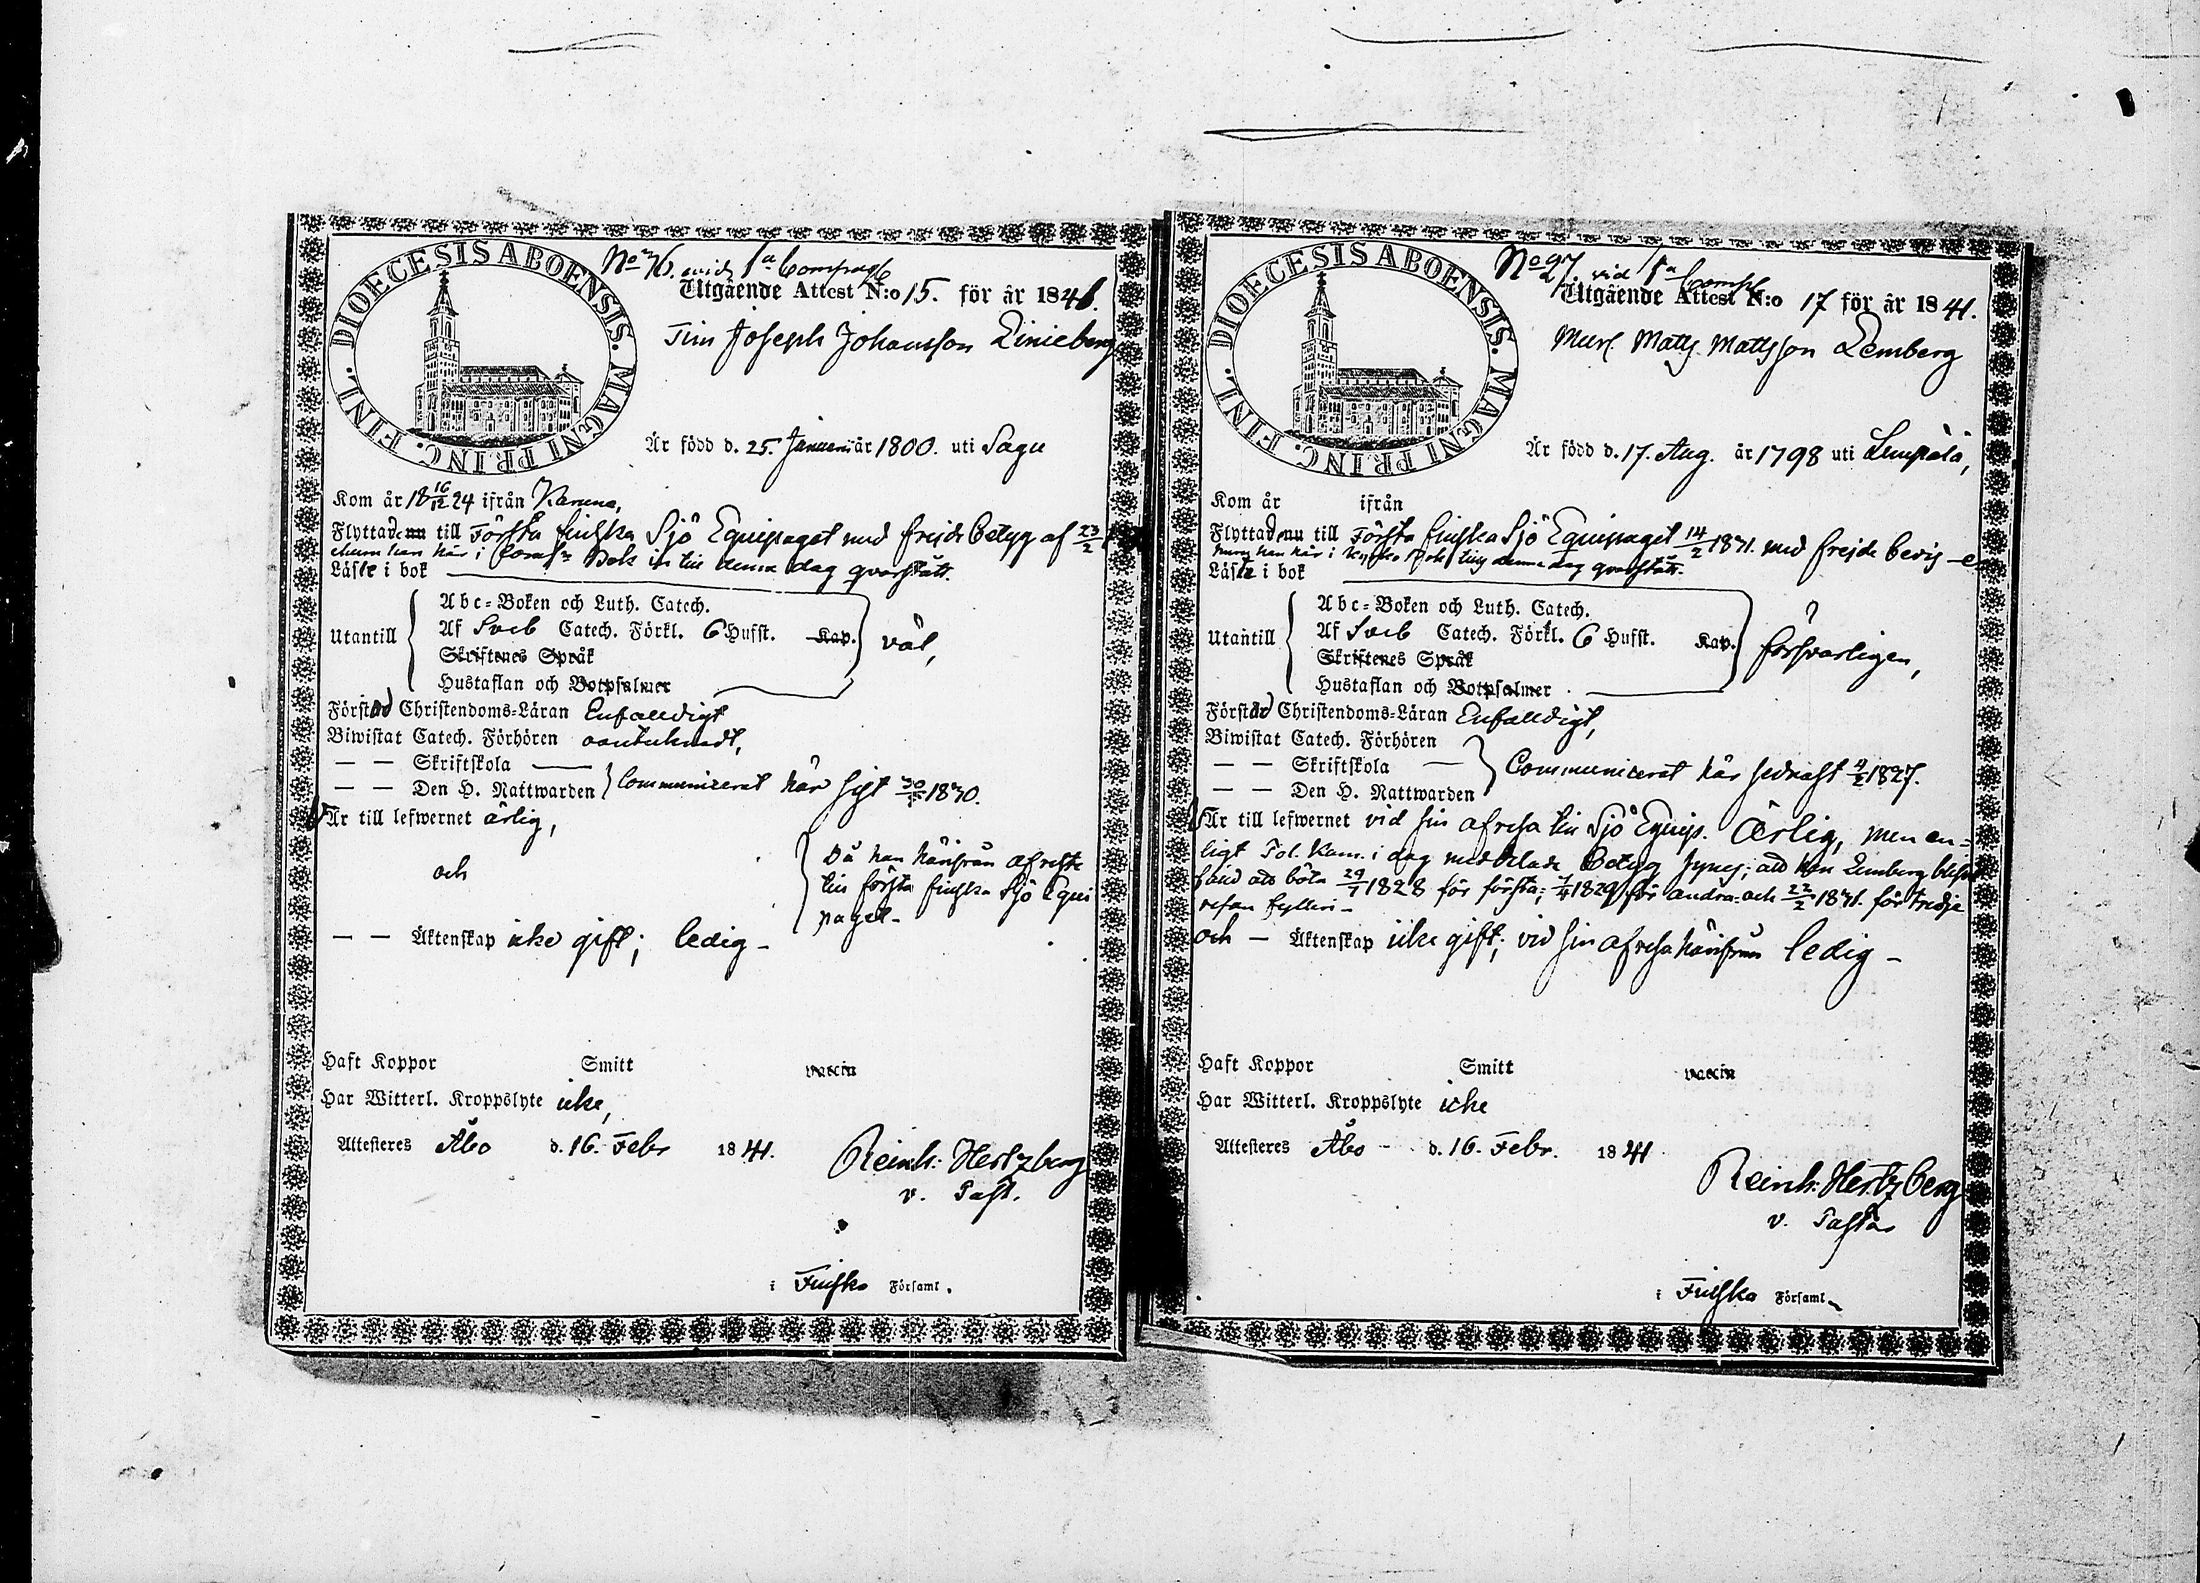 DIOECESIS ABOENSIS. MAGNI PRINC. FINL.
No 36. vid 1a Compagl
Utgående Attest N:o 15. för år 1841.
Tim Joseph Johansson Linieberg
Är född d. 25. Januari år 1800. uti Sagu
Kom år 18 16/12 24 ifrån Karuna,
Flyttade till Första finska Sjö Equipaget med frejde betyg af 23/2
han här i Bok in till denna dag qvarstått.
Läste i bok
Abc-Boken och Luth. Catech.
Utantill Af Sveb Catech. Förkl. 6 Hufst. Kap. väl,
Skriftenes Språk
Hustaflan och Botpsalmer
Förstår Christendoms-Läran Enfalldigt
Biwistat Catech. Förhören oantecknadt,
— — Skriftskola
— — Den H. Nattwarden Communicerat här sist 1830.
Är till lefwernet ärlig,
och
Då han härifrån afreste
till första finska Sjö Equi
paget.
— — Äktenskap icke gift; ledig
Haft Koppor Smitt vaccin
Har Witterl. Kroppslyte icke,
Attesteres Åbo d. 16. Febr 1841.
Reinh: Hertzberg
v. Past.
i Finska Församl.
DIOECESIS ABOENSIS. MAGNI PRINC. FINL.
No 27. vid 1a Comp
Utgående Attest N:o 17 för år 1841.
Murl. Matts Mattsson Lemberg
Är född d. 17. Aug. år 1798 uti Lempälä,
Kom år ifrån
Flyttade till Första finska Sjö Equipaget 14/2 1831. med frejde bevis
han här i Kyrko Bok denna dag qvarstått.
Läste i bok
Abc-Boken och Luth. Catech.
Utantill Af Sveb Catech. Förkl. 6 Hufst. Kap. försvarligen,
Skriftenes Språk
Hustaflan och Botpsalmer
Förstår Christendoms-Läran Enfalldigt,
Biwistat Catech. Förhören
— — Skriftskola
— — Den H. Nattwarden Communicerat här sednast 1827.
Är till lefwernet vid sin afresa till Sjö Equip. Ärlig, men en-
ligt Pol. Kam. i dag meddelade Betyg synes, att Lemberg blifvit
att böta 29/1 1828 för första, 1829 för andra och 22/2 1831 för tredje
resan fylleri
och — Äktenskap icke gift; vid sin afresa härifrån ledig
Haft Koppor Smitt vaccin
Har Witterl. Kroppslyte icke
Attesteres Åbo d. 16. Febr. 1841
Reinh: Hertzberg
v. Pastor
i Finska Församl.